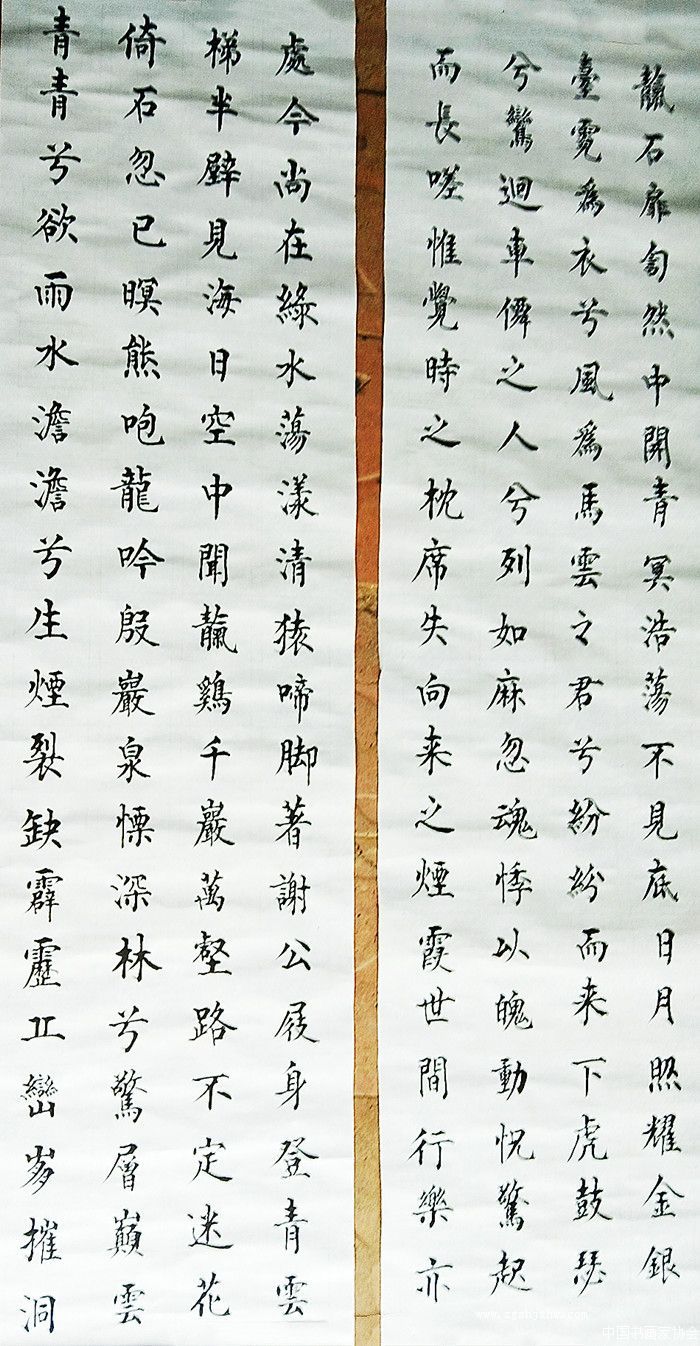 處今尚在綠水蕩漾清猿啼脚著謝公屐身登青雲
梯半壁見海日空中聞靝鷄千巖萬壑路不定迷花
倚石忽已暝熊咆龍吟殷巖泉慄深林兮驚層巔雲
青青兮欲雨水澹澹兮生煙裂缺霹靂丘巒崩摧洞
靝石扉訇然中開青冥浩蕩不見底日月照耀金銀
臺霓爲衣兮風爲馬雲之君兮紛紛而来下虎鼓瑟
兮鸞迴車僊之人兮列如麻忽魂悸以魄動怳驚起
而長嗟惟覺時之枕席失向来之煙霞世間行樂亦
中国书画家协会